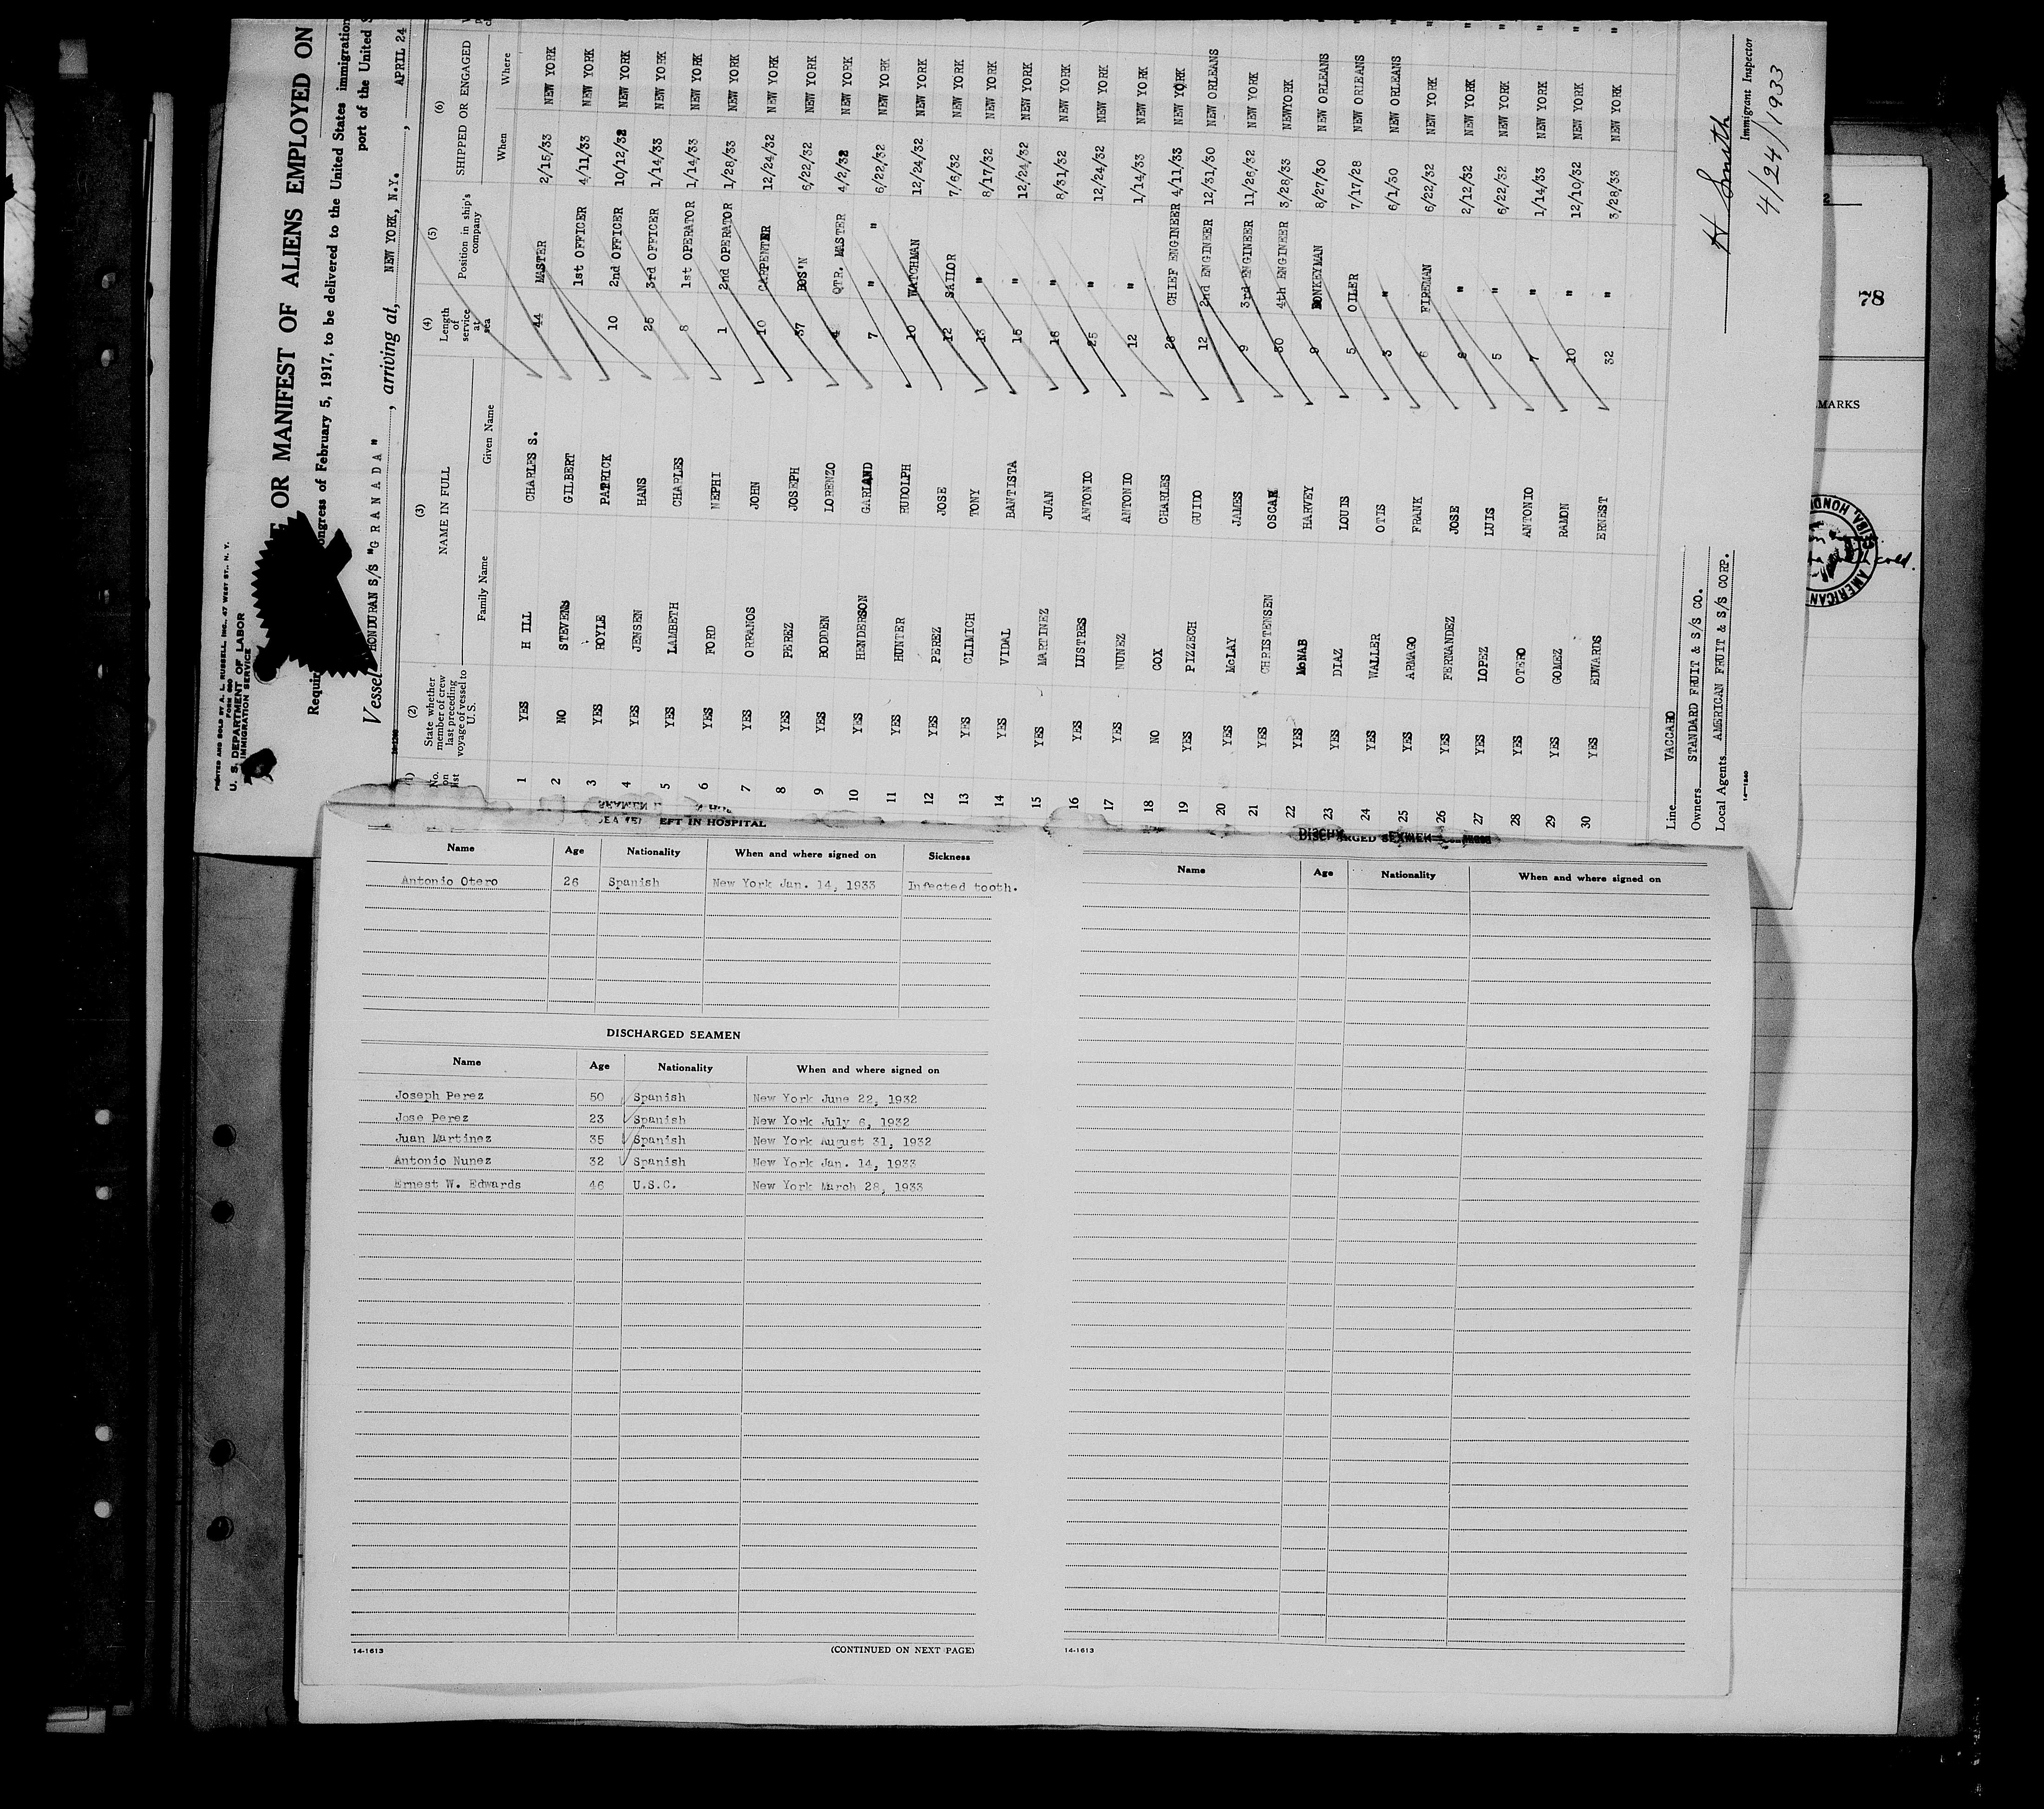 PRINTED AND SOLD BY A. L. RUSSELL, INC., 47 WEST ST., N. Y.
FORM 680
U. S. DEPARTMENT OF LABOR
IMMIGRATION SERVICE
OR MANIFEST OF ALIENS EMPLOYED ON
ongress of February 5, 1917, to be delivered to the United States immigration
port of the United S
Vessel HONDURAN S/S "GRANADA", arriving at, NEW YORK, N.Y., APRIL 24
(1) No. on list (2) State whether member of crew last preceding voyage of vessel to U.S. (3) NAME IN FULL Family Name Given Name (4) Length of service at sea (5) Position in ship's company (6) SHIPPED OR ENGAGED When Where
1 YES H ILL CHARLES S. 44 MASTER 2/15/33 NEW YORK
2 NO STEVENS GILBERT 1st OFFICER 4/11/33 NEW YORK
3 YES BOYLE PATRICK 10 2nd OFFICER 10/12/32 NEW YORK
4 YES JENSEN HANS 25 3rd OFFICER 1/14/33 NEW YORK
5 YES LAMBETH CHARLES 8 1st OPERATOR 1/14/33 NEW YORK
6 YES FORD NEPHI 1 2nd OPERATOR 1/28/33 NEW YORK
7 YES ORFANOS JOHN 10 CARPENTER 12/24/32 NEW YORK
8 YES PEREZ JOSEPH 37 BOS'N 6/22/32 NEW YORK
9 YES BODDEN LORENZO 4 QTR. MASTER 4/2/32 NEW YORK
10 YES HENDERSON GARLAND 7 " " 6/22/32 NEW YORK
11 YES HUNTER RUDOLPH 10 WATCHMAN 12/24/32 NEW YORK
12 YES PEREZ JOSE 12 SAILOR 7/6/32 NEW YORK
13 YES CLIMICH TONY 13 " 8/17/32 NEW YORK
14 YES VIDAL BAUTISTA 15 " 12/24/32 NEW YORK
15 YES MARTINEZ JUAN 16 " 8/31/32 NEW YORK
16 YES LUSTRES ANTONIO 25 " 12/24/32 NEW YORK
17 YES NUNEZ ANTONIO 12 " 1/14/33 NEW YORK
18 NO COX CHARLES 26 CHIEF ENGINEER 4/11/33 NEW YORK
19 YES PIZZECH GUIDO 12 2nd ENGINEER 12/31/30 NEW ORLEANS
20 YES McLAY JAMES 9 3rd ENGINEER 11/26/32 NEW YORK
21 YES CHRISTENSEN OSCAR 30 4th ENGINEER 3/28/33 NEWYORK
22 YES McNAB HARVEY 9 DONKEYMAN 8/27/30 NEW ORLEANS
23 YES DIAZ LOUIS 5 OILER 7/17/28 NEW ORLEANS
24 YES WALLER OTIS 3 " 6/1/30 NEW ORLEANS
25 YES ARMAGO FRANK 6 FIREMAN 6/22/32 NEW YORK
26 YES FERNANDEZ JOSE 8 " 2/12/32 NEW YORK
27 YES LOPEZ LUIS 5 " 6/22/32 NEW YORK
28 YES OTERO ANTONIO 7 " 1/14/33 NEW YORK
29 YES GOMEZ RAMON 10 " 12/10/32 NEW YORK
30 YES EDWARDS ERNEST 32 " 3/28/33 NEW YORK
Line VACCARO
Owners STANDARD FRUIT & S/S CO.
Local Agents AMERICAN FRUIT & S/S CORP.
H Smith
Immigrant Inspector
4/24/1933
78
MARKS
AMERICAN
EFT IN HOSPITAL
Name Age Nationality When and where signed on Sickness
Antonio Otero 26 Spanish New York Jan. 14, 1933 Infected tooth.
DISCHARGED SEAMEN
Name Age Nationality When and where signed on
Joseph Perez 50 Spanish New York June 22, 1932
Jose Perez 23 Spanish New York July 6, 1932
Juan Martinez 35 Spanish New York August 31, 1932
Antonio Nunez 32 Spanish New York Jan. 14, 1933
Ernest W. Edwards 46 U.S.C. New York March 28, 1933
14-1613 (CONTINUED ON NEXT PAGE)
DISCHARGED SEAMEN
Name Age Nationality When and where signed on
14-1613